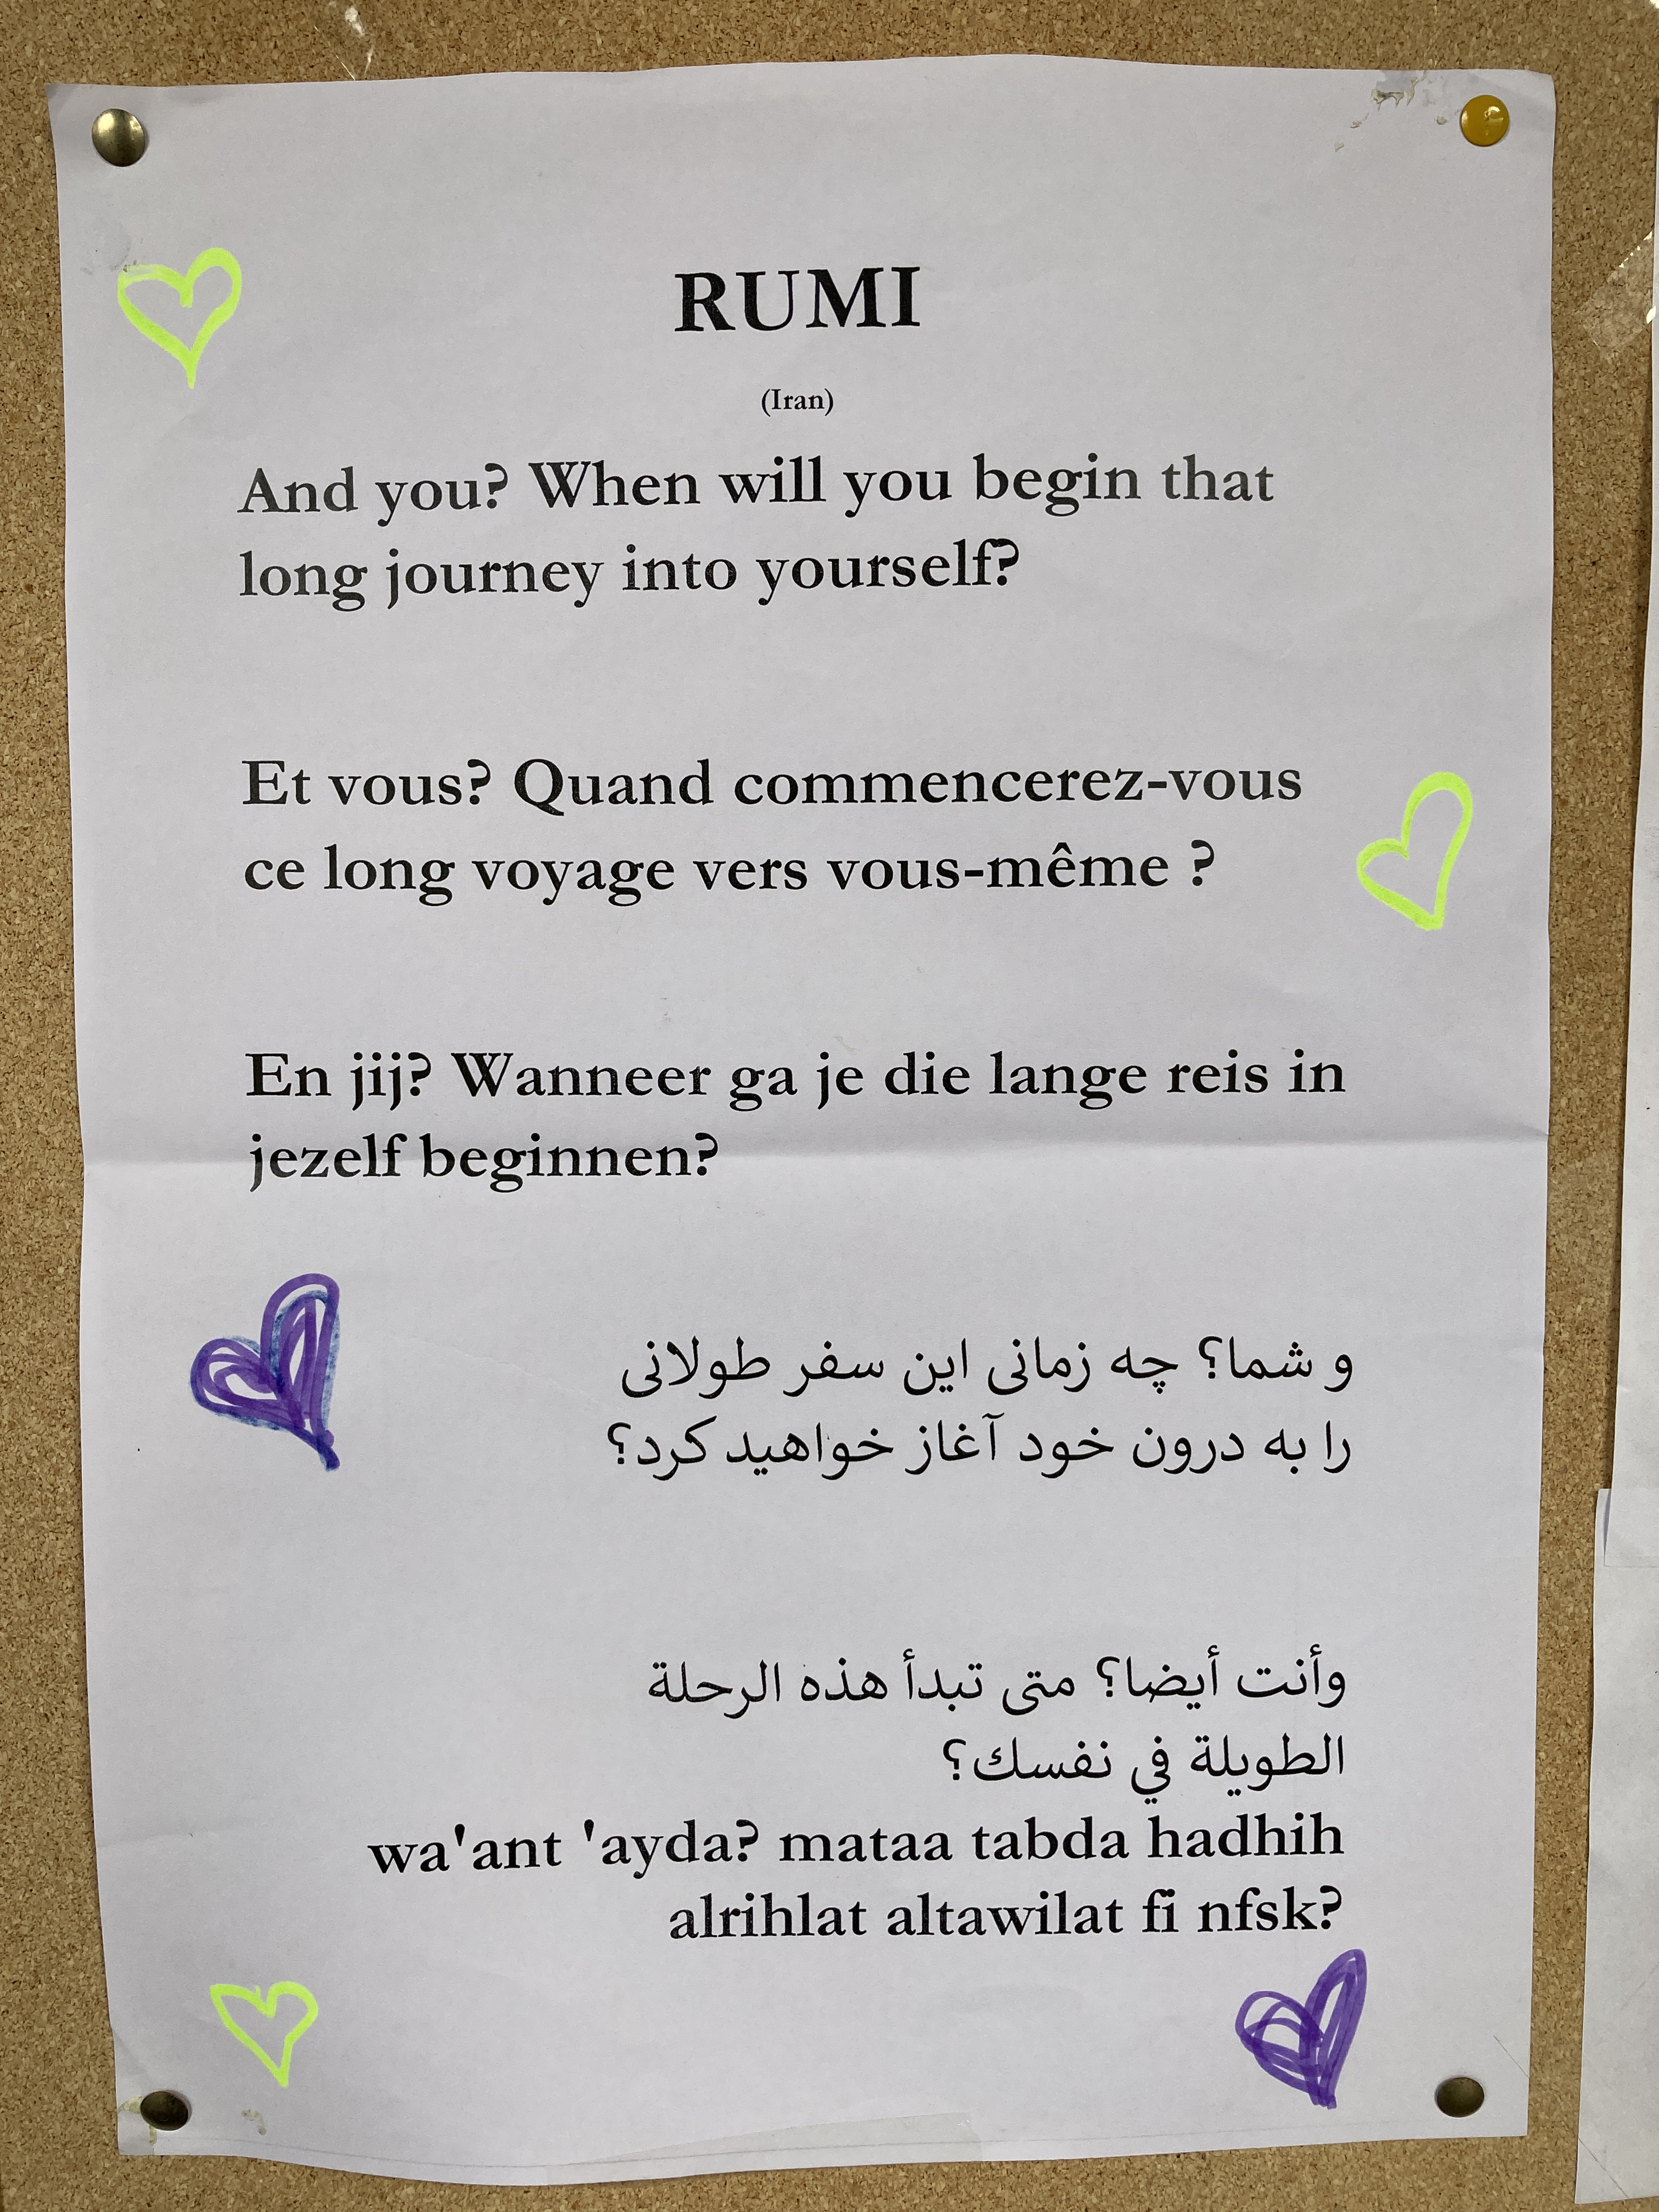 RUMI
(Iran)
And you? When will you begin that
long journey into yourself?
Et vous? Quand commencerez-vous
ce long voyage vers vous-même ?
En jij? Wanneer ga je die lange reis in
jezelf beginnen?
و شما؟ چه زمانی این سفر طولانی
را به درون خود آغاز خواهید کرد؟
وأنت أيضا؟ متى تبدأ هذه الرحلة
الطويلة في نفسك؟
wa'ant 'ayda? mataa tabda hadhih
alrihlat altawilat fi nfsk?